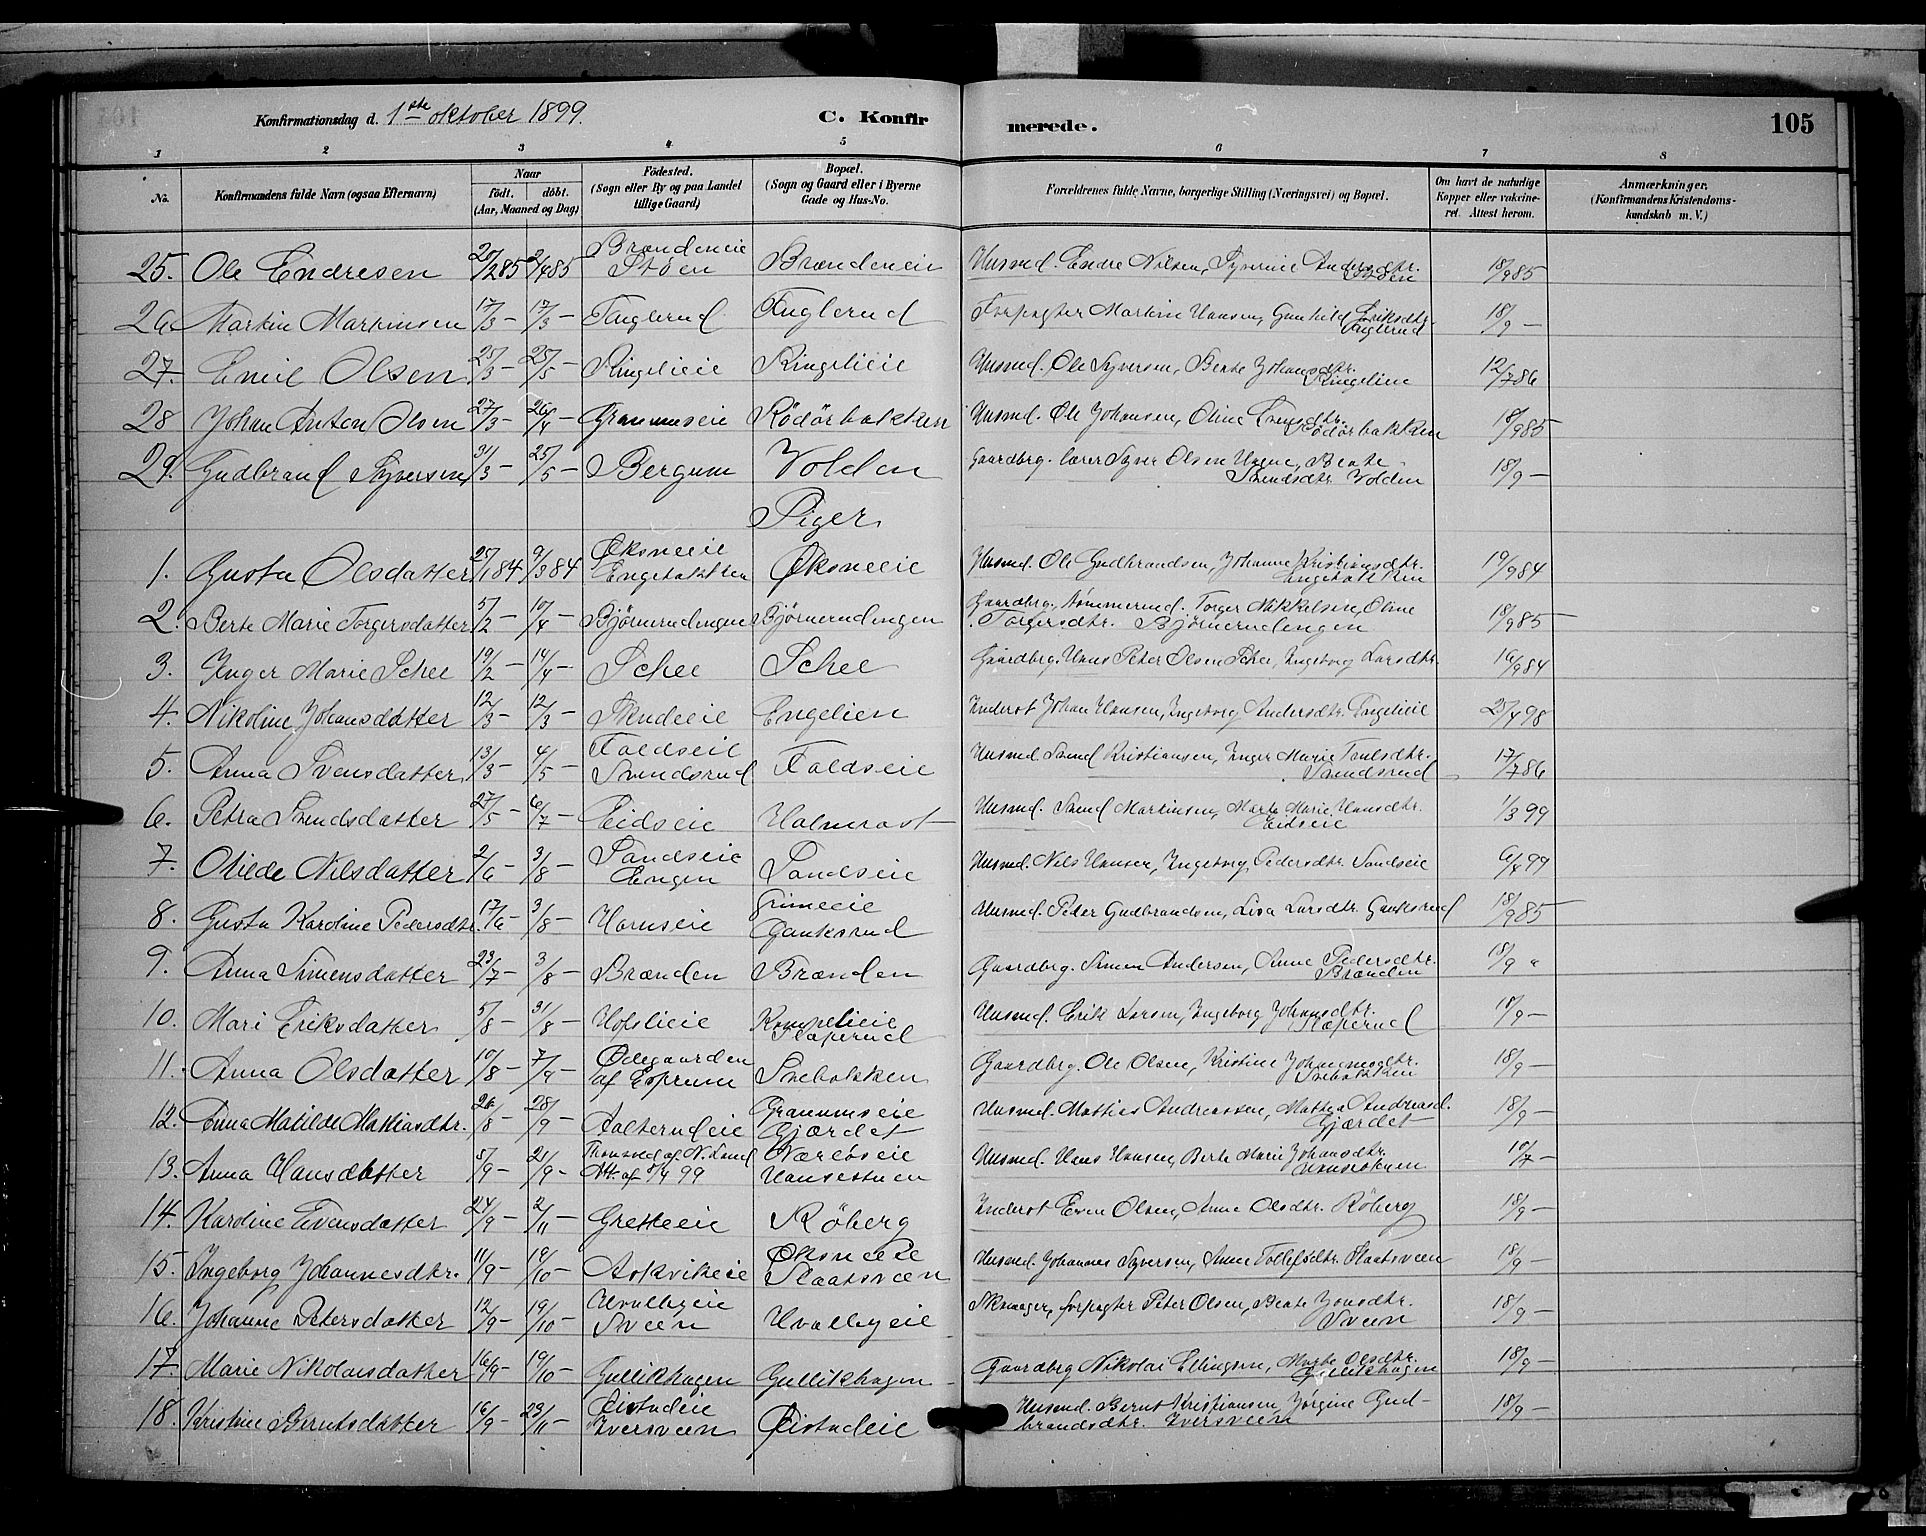 Konfirmationsdag d. 1ste oktober 1899. C. Konfirmerede. 105
1 2 3 4 5 6 7 8
No. Konfirmandens fulde Navn (ogsaa Efternavn) Naar født. døbt. (Aar, Maaned og Dag) Fødested. (Sogn eller By og paa Landet tillige Gaard) Bopæl. (Sogn og Gaard eller i Byerne Gade og Hus-No. Forældrenes fulde Navne, borgerlige Stilling (Næringsvei) og Bopæl. Om havt de naturlige Kopper eller vakcineret. Attest herom. Anmærkninger. (Konfirmandens Kristendomskundskab m. V.)
25. Ole Endresen 20/2 85 2/4 85 Brændeneie Støen Brændeneie Husmd. Endre Nilsen, Syverine Andersdtr. Støen 18/9 85
26 Martin Martinsen 17/3 – 17/3 – Fuglerud Fuglerud Forpagter Martin Hansen, Gunhild Eriksdtr. Fuglerud 18/9 –
27. Emil Olsen 25/3 – 25/5 – Ringelieie Ringelieie Husmd. Ole Syversen, Beate Johansdtr. Ringelieie 12/7 86
28 Johan Anton Olsen 27/3 – 26/4 – Granumseie Rödörbakken Husmd. Ole Johansen, Oline Evensdtr. Rödörbakken 18/9 85
29. Gudbrand Syversen 31/3 – 25/5 – Bergum Volden Gaardbrg. lærer Syver Olsen Hagne, Beate Svendsdtr. Volden 18/9 –
Piger
1. Gusta Olsdatter 25/1 84 9/3 84 Øksneeie Engebakken Øksneeie Husmd. Ole Gudbrandsen, Johanne Kristiansdtr. Engebakken 19/9 84
2. Berte Marie Torgersdatter 5/2 – 10/4 – Bjørnerudengen Bjørnerudengen Gaardbrg. tømmermd. Torger Mikkelsen, Oline Torgersdtr. Bjørnerudengen 18/9 85
3. Inger Marie Schee 19/2 – 14/4 – Schee Schee Gaardbrg. Hans Peter Olsen Schee, Ingeborg Larsdtr. 16/9 84
4. Nikoline Johansdatter 12/3 – 12/3 – Skudeeie Engelien Inderst Johan Hansen, Ingeborg Andersdtr. Engelieie 25/4 98
5. Anna Svensdatter 13/3 – 4/5 – Foldseie Svendsrud Foldseie Husmd. Svend Kristiansen, Inger Marie Paulsdtr. Svendsrud 17/7 86
6. Petra Svendsdatter 27/5 – 6/7 – Eidseie Halmrast Husmd. Svend Martinsen, Marte Marie Hansdtr. Eidseie 1/3 99
7. Otilde Nilsdatter 2/6 – 3/8 – Sandseie Engen Sandseie Husmd. Nils Hansen, Ingeborg Pedersdtr. Sandseie 6/4 99
8. Gusta Karoline Pedersdtr. 17/6 – 3/8 – Hornseie Grimeeie Gauksrud Husmd. Peder Gudbrandsen, Lisa Larsdtr. Gauksrud 18/9 85
9. Anna Simensdatter 23/7 – 3/8 – Brænden Brænden Gaardbrg. Simen Andersen, Anne Pedersdtr. Brænden 18/9 "
10. Mari Eriksdatter 5/8 – 31/8 – Hofslieie Kompelieie Slaperud Husmd. Erik Larsen, Ingeborg Johansdtr. Slaperud 18/9 –
11. Anna Olsdatter 10/8 – 7/9 – Ødegaarden af Esperum Snebakken Gaardbrg. Ole Olsen, Kristine Johannesdtr. Snebakken 18/9 –
12. Anna Matilde Matiasdtr. 26/8 – 28/9 – Aalterudeie Granumseie Gjærdet Husmd. Mathias Andreassen, Mathea Andreasd. Gjærdet 18/9 –
13. Anna Hansdatter 8/9 – 21/9 – Att. af 8/9 99 Næreseie Hansestuen Husmd. Hans Hansen, Berte Marie Johansdtr. Hansestuen 18/7 –
14. Karoline Evensdatter 24/9 – 2/11 – Gretteeie Røberg Inderst Even Olsen, Anne Olsdtr. Røberg 18/9 –
15. Ingeborg Johannesdtr. 11/9 – 19/10 – Askvikeie Øksneeie Slaatsveen Husmd. Johannes Syversen, Anne Tollefsdtr. Slaatsveen 18/9 –
16. Johanne Petersdatter 12/9 – 19/10 – Hvalbyeie Sveen Hvalbyeie Skomager, forpagter Peter Olsen, Beate Jonsdtr. Sveen 18/9 –
17. Marie Nikolaisdatter 16/9 – 19/10 – Gullikhagen Gullikhagen Gaardbrg Nikolai Ellingsen, Marte Olsdtr. Gullikhagen 18/9 –
18. Kristine Berntsdatter 16/9 – 23/11 – Øistudeie Iversveen Øistudeie Husmd. Bernt Kristiansen, Jørgine Gudbrandsdtr. Iversveen 18/9 –